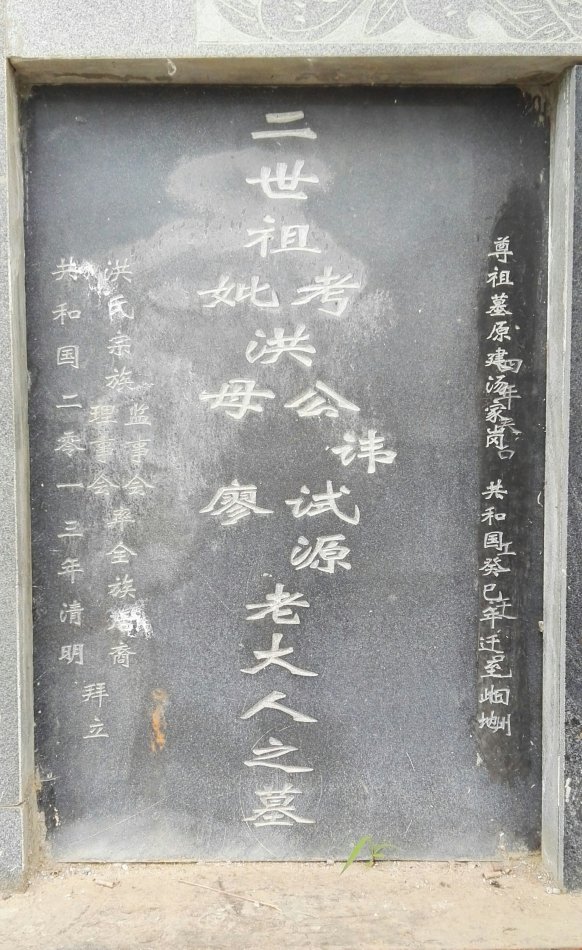 尊祖墓原建汤家岗 共和国癸巳年迁至此地
二世祖
考 妣
洪
公 母
讳试源 廖
老大人之墓
洪氏宗族监事会理事会率全族裔
共和国二零一三年清明 拜立